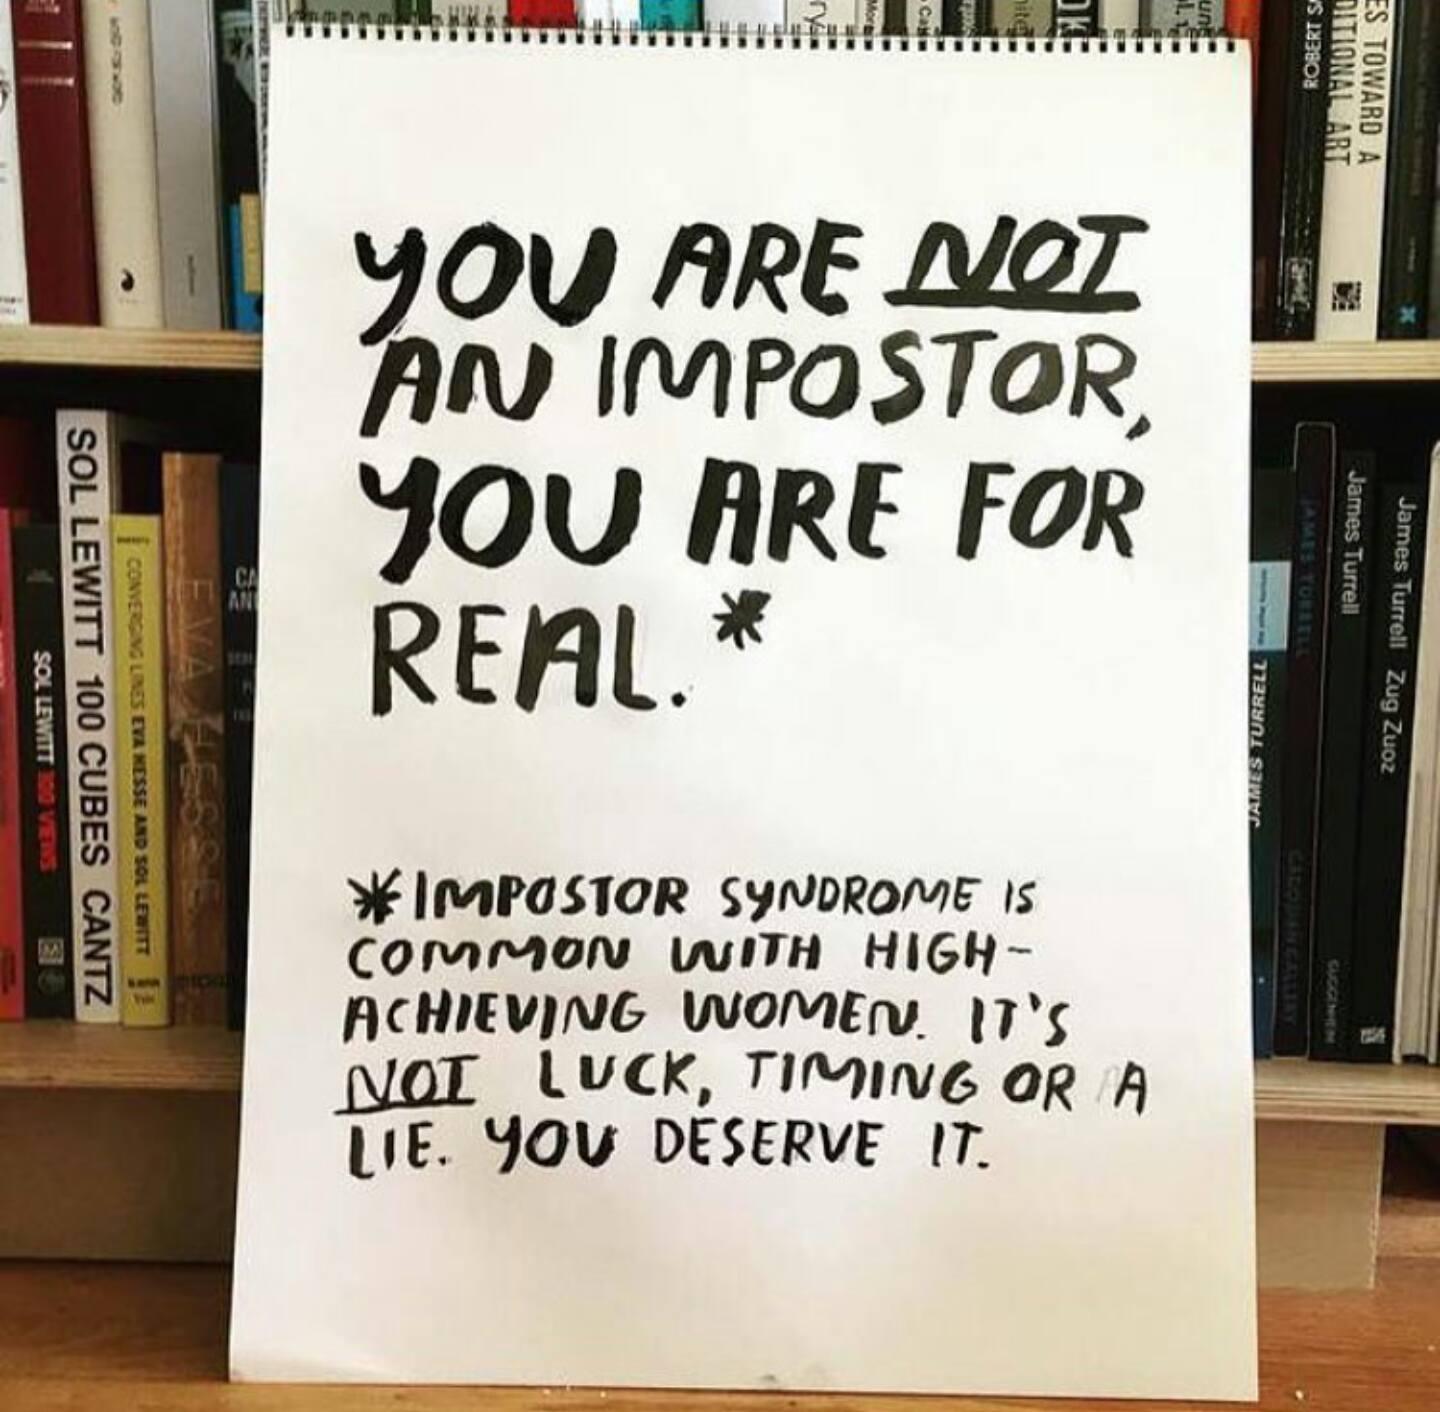 YOU ARE NOT
AN IMPOSTOR,
YOU ARE FOR
REAL.*
*IMPOSTOR SYNDROME IS
COMMON WITH HIGH-
ACHIEVING WOMEN. IT'S
NOT LUCK, TIMING OR A
LIE. YOU DESERVE IT.
SOL LEWITT 100 VIEWS
SOL LEWITT 100 CUBES CANTZ
CONVERGING LINES EVA HESSE AND SOL LEWITT
EVA HESSE
ROBERT
ES TOWARD A
DITIONAL ART
JAMES TURRELL
JAMES TURRELL
James Turrell
GUGGENHEIM
James Turrell Zug Zuoz